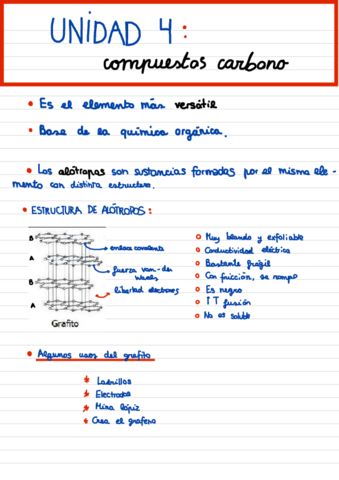 UNIDAD 4:
compuestos carbono
• Es el elemento más versátil
• Base de la química orgánica.
• Los alótropos son sustancias formadas por el mismo ele-
mento con distinta estructura.
• ESTRUCTURA DE ALÓTROPOS:
B
A
B
A
Grafito
enlace covalente
fuerza van-der
Waals
libertad electrones
Muy blando y exfoliable
Conductividad eléctrica
Bastante frágil
Con fricción, se rompe
Es negro
↑T fusión
No es soluble
• Algunos usos del grafito
Ladrillos
Electrodos
Mina lápiz
Crea el grafeno